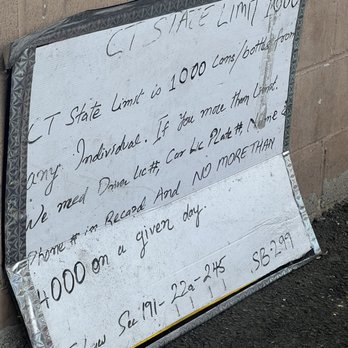 CT STATE LIMIT 1000
CT State Limit is 1000 Cans/bottle from
any Individual. If you more than Limit.
We need Driver Lic#, Car Lic Plate# Name &
Phone # in Record And NO MORE THAN
4000 on a given day.
Law Sec 191-22a-245 SB-299